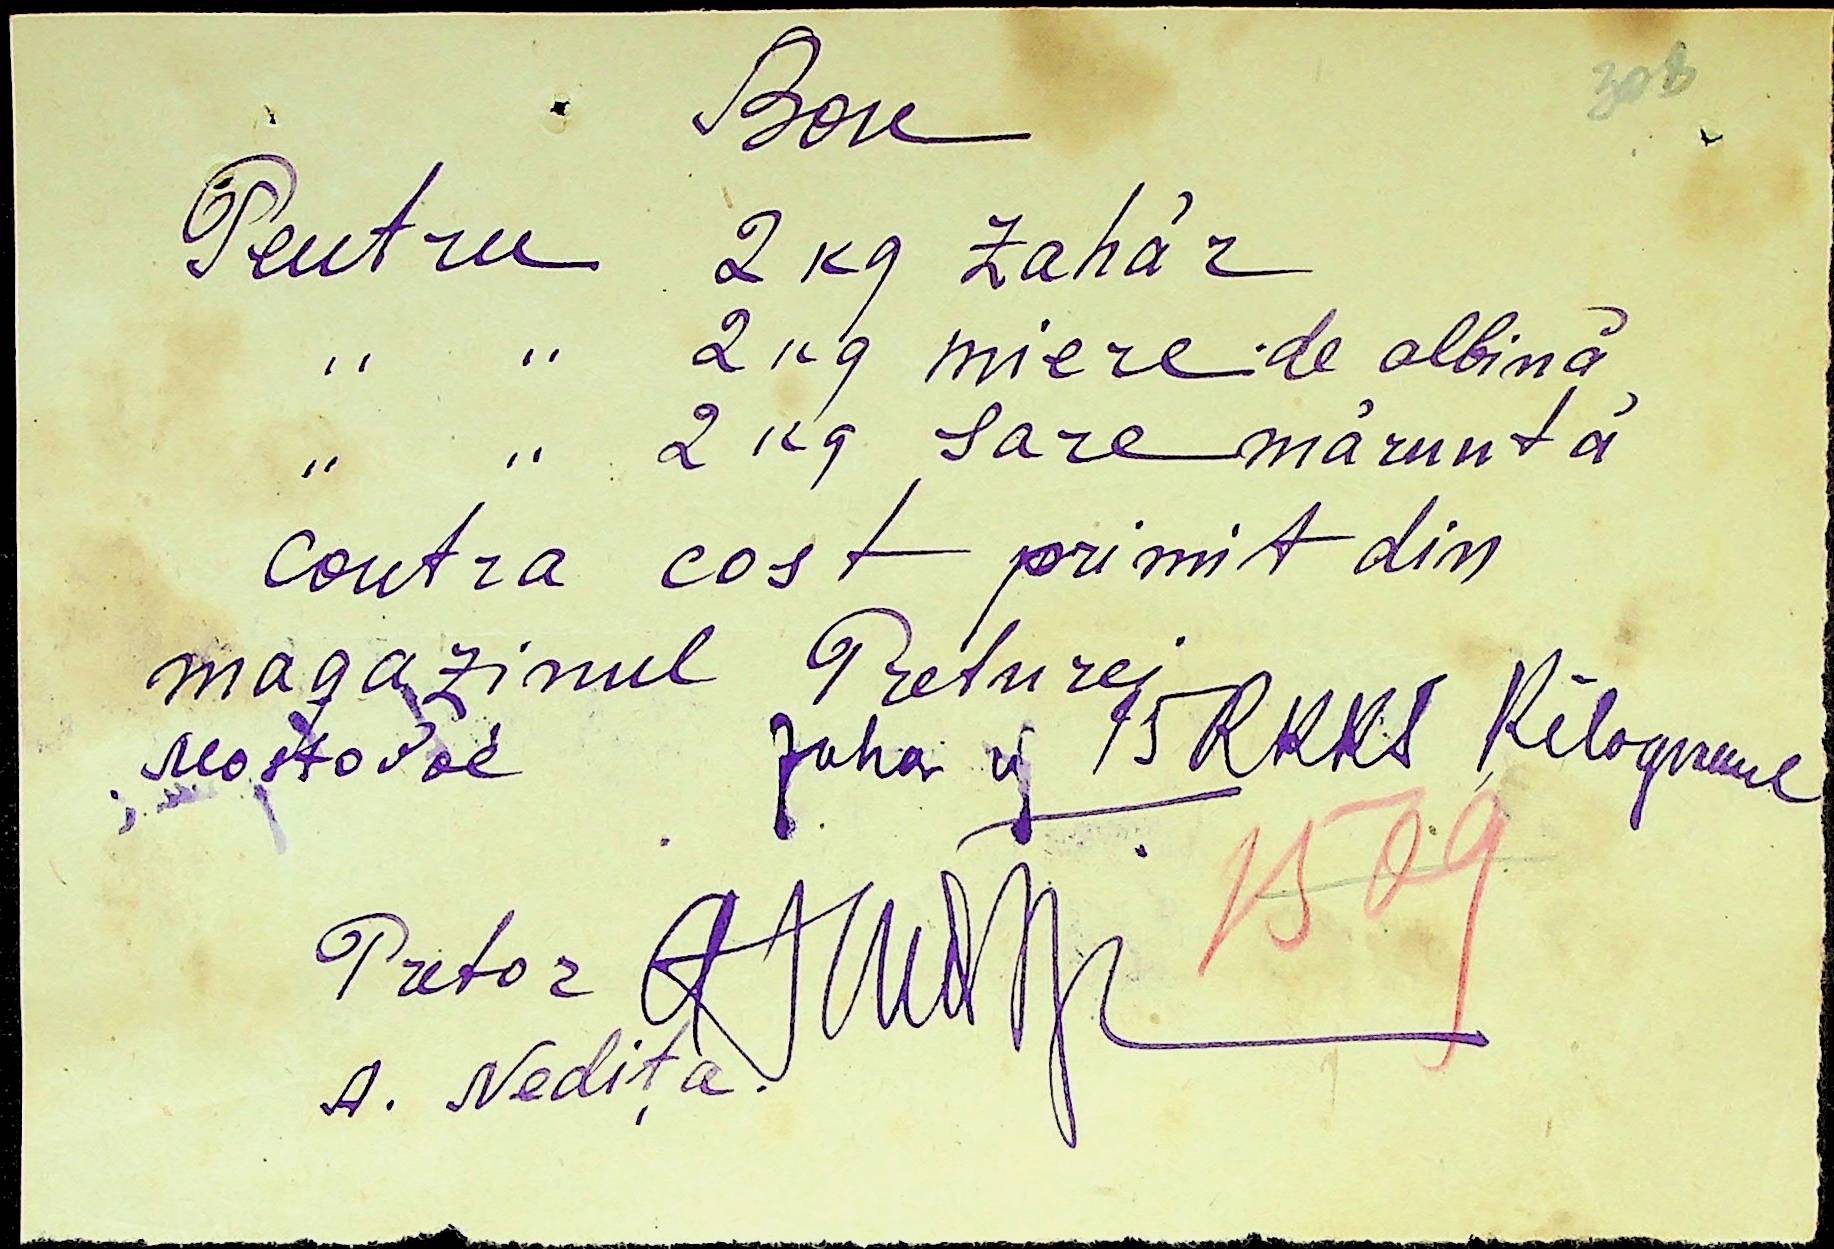 308
Bon
Pentru 2 kg zahăr
" " 2 kg miere de albină
" " 2 kg sare măruntă
contra cost primit din
magazinul Preturei
Mostovoi zahar 15 RKKS Kilogramul
1509
Pretor
A. Nedița.